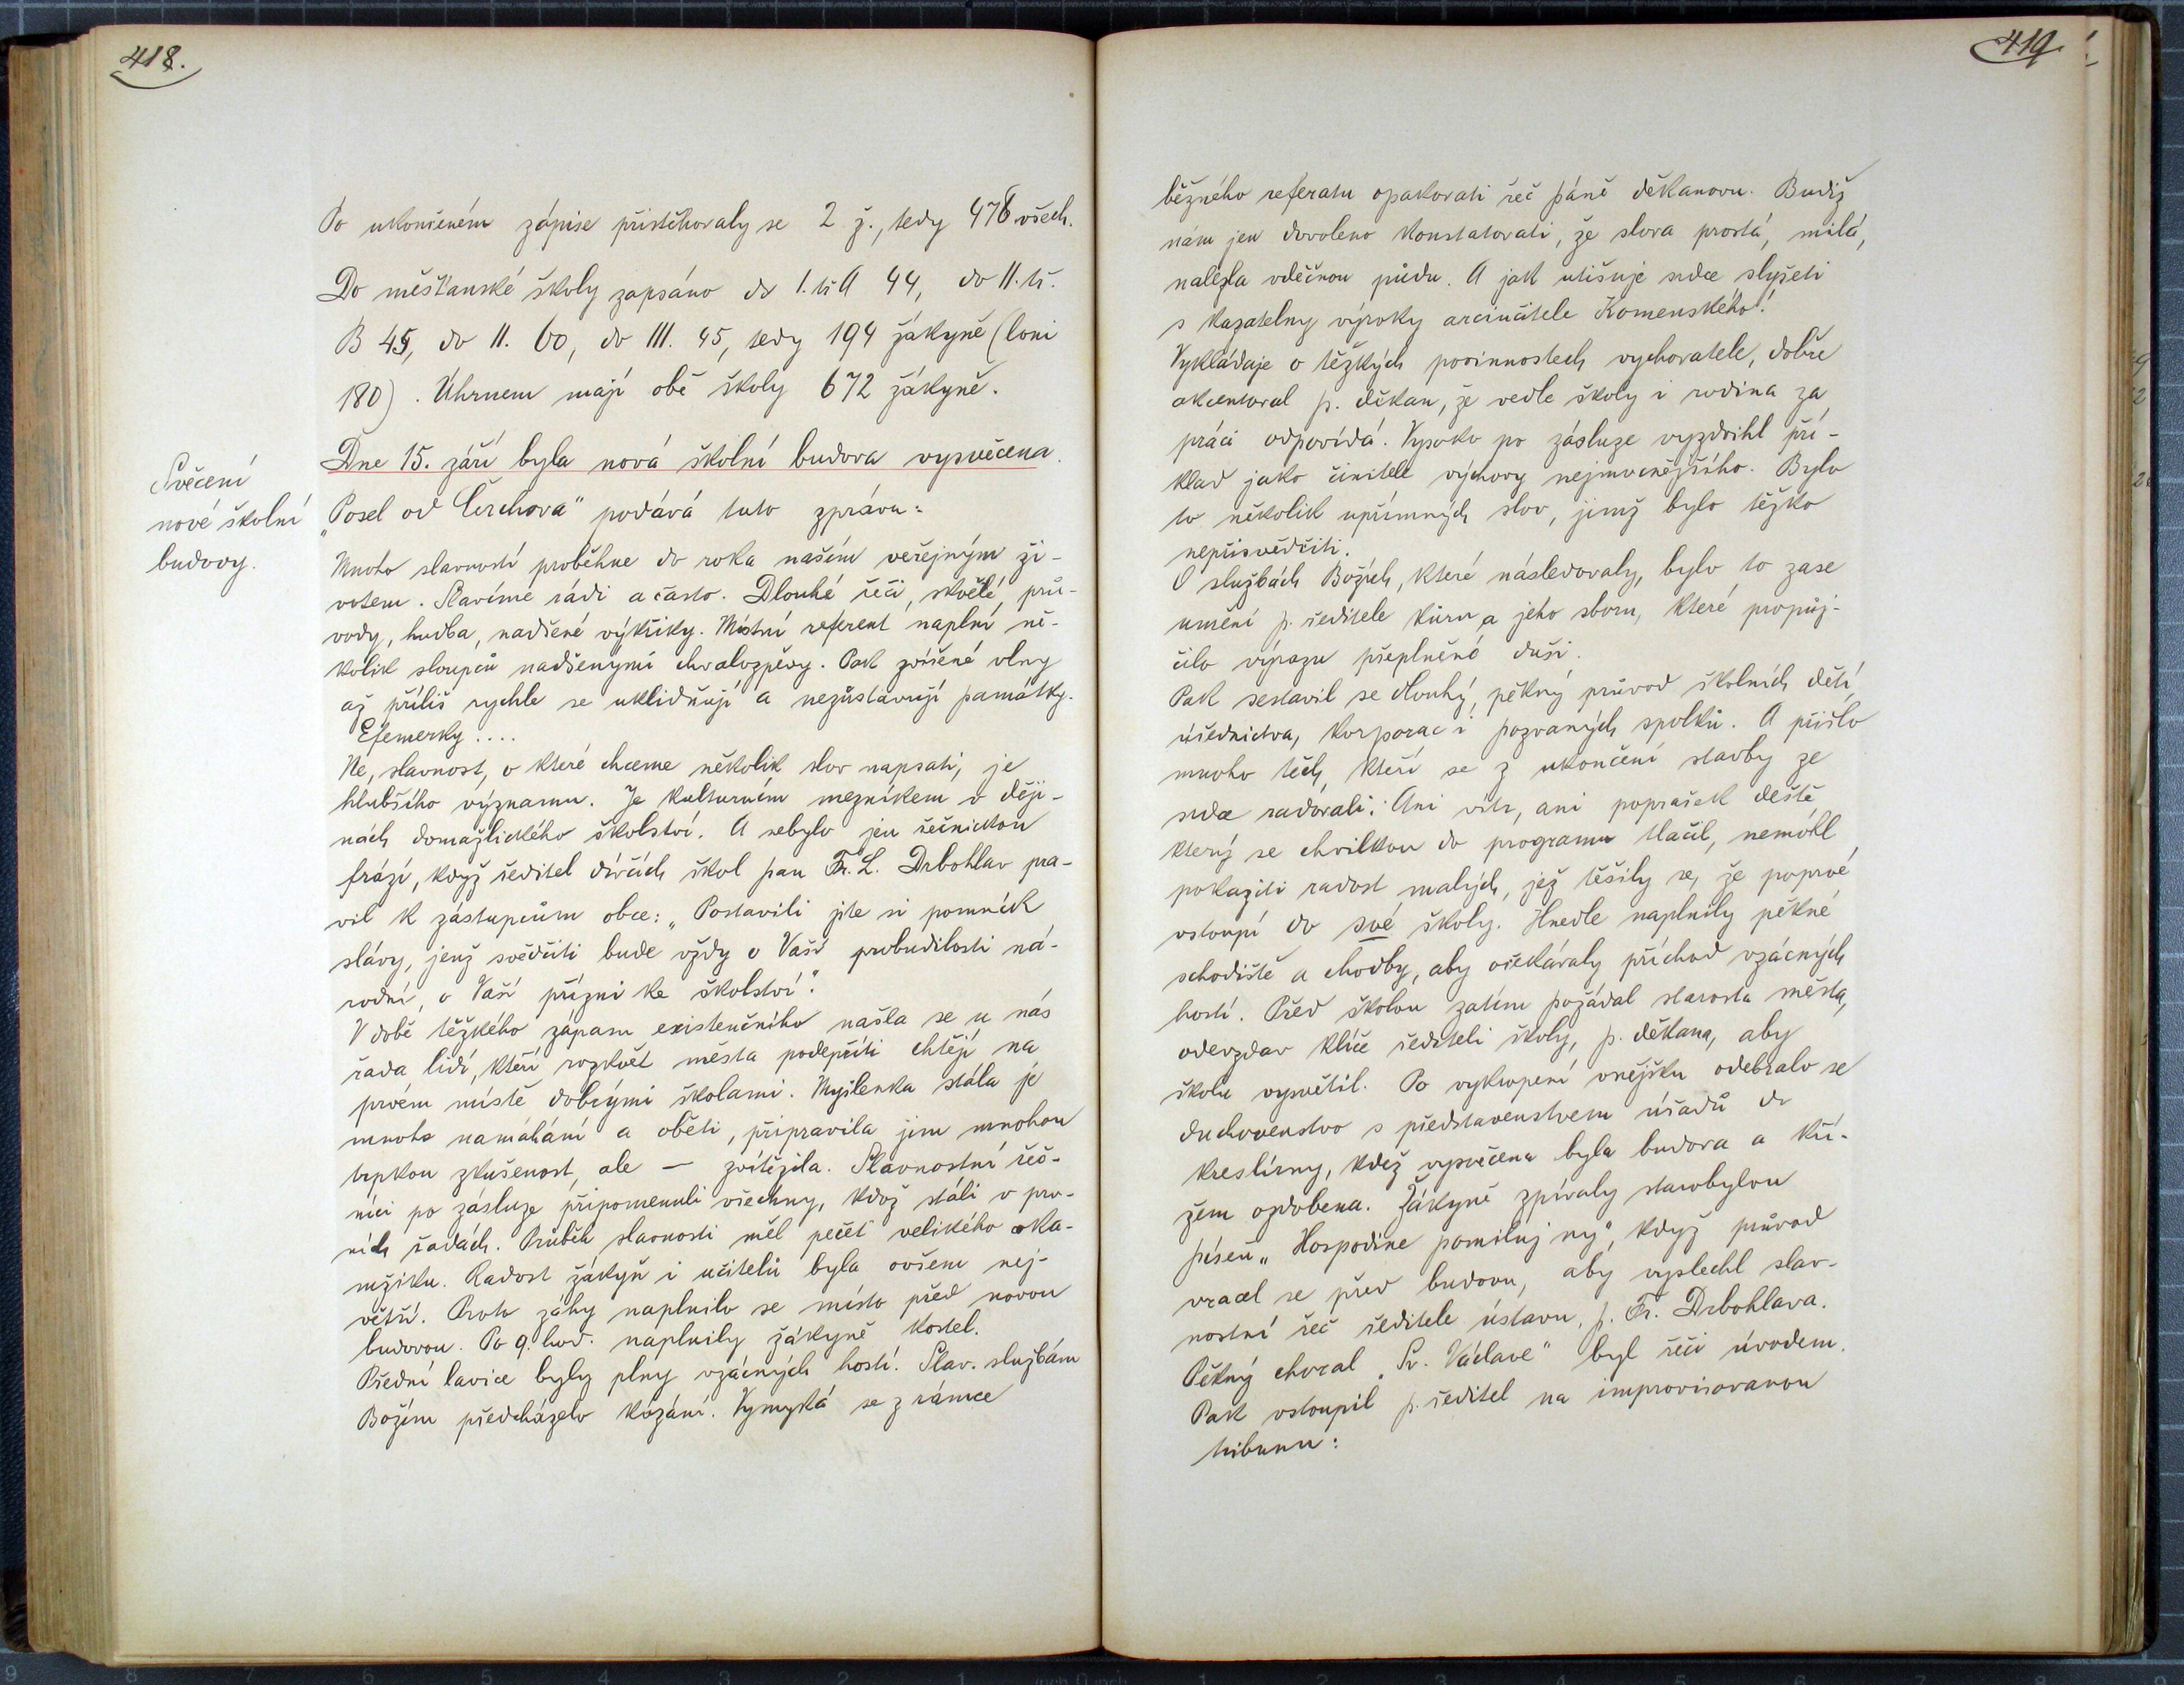 418.
Po ukončeném zápise přistěhovaly se 2 ž., tedy 478 všech.
Do měšťanské školy zapsáno do I. tř A 44, do II. tř.
B 45, do II. 60, do III. 45, tedy 194 žákyně (loni
180). Úhrnem mají obě školy 672 žákyně.
Dne 15. září byla nová školní budova vysvěcena.
Svěcení
nové školní
budovy.
„Posel od Čerchova" podává tuto zprávu:
Mnoho slavností proběhne do roka naším veřejným ži-
votem. Slavíme rádi a často. Dlouhé řeči, skvělé prů-
vody, hudba, nadšené výkřiky. Místní referent naplní ně-
kolik sloupců nadšenými chvalozpěvy. Pak zvířené vlny
až příliš rychle se uklidňují a nezůstavují památky.
Efemerky....
Ne, slavnost, o které chceme několik slov napsati, je
hlubšího významu. Je kulturním mezníkem v ději-
nách domažlického školství. A nebylo jen řečnickou
frází, když ředitel dívčích škol pan Fr. L. Drbohlav pra-
vil k zástupcům obce: „Postavili jste si pomník
slávy, jenž svědčiti bude vždy o Vaší probudilosti ná-
rodní, o Vaší přízni ke školství".
V době těžkého zápasu existenčního našla se u nás
řada lidí, kteří rozkvět města podepříti chtějí na
prvém místě dobrými školami. Myšlenka stála je
mnoho namáhání a oběti, připravila jim mnohou
trpkou zkušenost, ale — zvítězila. Slavnostní řeč-
níci po zásluze připomenuli všechny, kdož stáli v prv-
ních řadách. Průběh slavnosti měl pečeť velikého oka-
mžiku. Radost žákyň i učitelů byla ovšem nej-
větší. Proto záhy naplnilo se místo před novou
budovou. Po 9. hod. naplnily žákyně kostel.
Přední lavice byly plny vzácných hostí. Slav. službám
Božím předcházelo kázání. Vymyká se z rámce
419.
běžného referatu opakovati řeč páně děkanovu. Budiž
nám jen dovoleno konstatovati, že slova prostá, milá,
nalezla vděčnou půdu. A jak utišuje srdce slyšeti
s kazatelny výroky arciučitele Komenského!
Vykládaje o těžkých povinnostech vychovatele, dobře
akcentoval p. děkan, že vedle školy i rodina za
práci odpovídá. Vysoko po zásluze vyzdvihl pří-
klad jako činitele výchovy nejmocnějšího. Bylo
to několik upřímných slov, jimž bylo těžko
nepřisvědčiti.
O službách Božích, které následovaly, bylo to zase
umění p. ředitele kůru a jeho sboru, které propůj-
čilo výrazu přeplněné duši.
Pak sestavil se dlouhý, pěkný průvod školních dětí,
úřednictva, korporací i pozvaných spolků. A přišlo
mnoho těch, kteří se z ukončení stavby ze
srdce radovali. Ani vítr, ani poprašek deště,
který se chvilkou do programu tlačil, nemohl
pokaziti radost malých, jež těšily se, že poprvé
vstoupí do své školy. Hnedle naplnily pěkné
schodiště a chodby, aby očekávaly příchod vzácných
hostí. Před školou zatím požádal starosta města,
odevzdav klíče řediteli školy, p. děkana, aby
školu vysvětil. Po vykropení vnějšku odebralo se
duchovenstvo s představenstvem úřadů do
kreslírny, kdež vysvěcena byla budova a kří-
žem ozdobena. Žákyně zpívaly starobylou
píseň „Hospodine pomiluj ny", když průvod
vracel se před budovu, aby vyslechl slav-
nostní řeč ředitele ústavu, p. Fr. Drbohlava.
Pěkný choral „Sv. Václave" byl řeči úvodem.
Pak vstoupil p. ředitel na improvisovanou
tribunu: